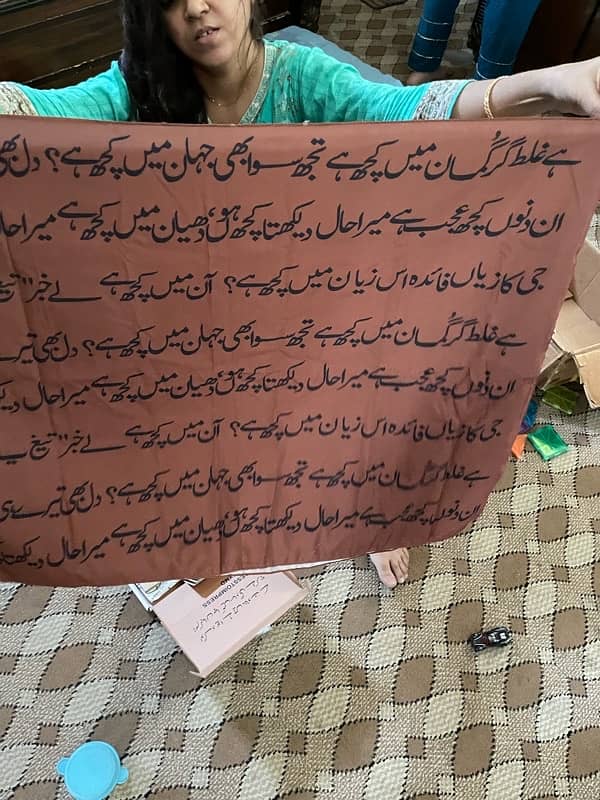 ہے غلط گر گمان میں کچھ ہے تجھ سوا بھی جہان میں کچھ ہے؟ دل بھی
ان دنوں کچھ عجب ہے میرا حال دیکھتا کچھ ہوں، دھیان میں کچھ ہے میرا حال
جی کا زیاں فائدہ اس زیان میں کچھ ہے؟ آن میں کچھ ہے لے خبر" تیغ
ہے غلط گر گمان میں کچھ ہے تجھ سوا بھی جہان میں کچھ ہے؟ دل بھی تیرے
ان دنوں کچھ عجب ہے میرا حال دیکھتا کچھ ہوں، دھیان میں کچھ ہے میرا حال
جی کا زیاں فائدہ اس زیان میں کچھ ہے؟ آن میں کچھ ہے لے خبر" تیغ
ہے غلط گر گمان میں کچھ ہے تجھ سوا بھی جہان میں کچھ ہے؟ دل بھی تیرے ہی
ان دنوں کچھ عجب ہے میرا حال دیکھتا کچھ ہوں، دھیان میں کچھ ہے میرا حال دیکھتا